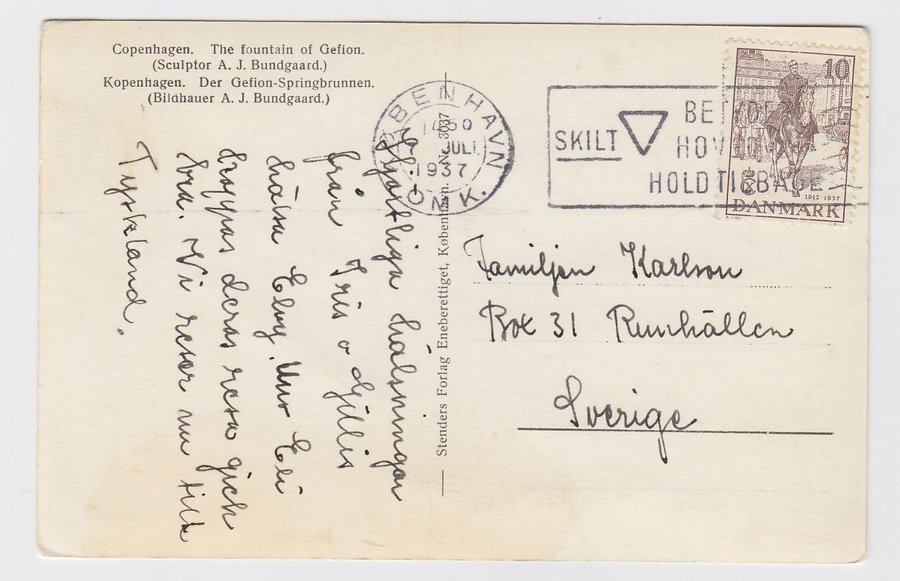 Copenhagen. The fountain of Gefion.
(Sculptor A. J. Bundgaard.)
Kopenhagen. Der Gefion-Springbrunnen.
(Bildhauer A. J. Bundgaard.)
KØBENHAVN
JULI
1937
OMK.
SKILT
BETYDER
HOLD TILBAGE
10
1912 1937
DANMARK
Stenders Forlag Eneberettiget, København. No. 3037
Hjärtliga hälsningar
från Iris o Gillis
hälsa Elvy. Hur
hoppas deras resa gick
bra. Vi reser nu till
Tyskland.
Familjen Karlson
Box 31 Runhällen
Sverige